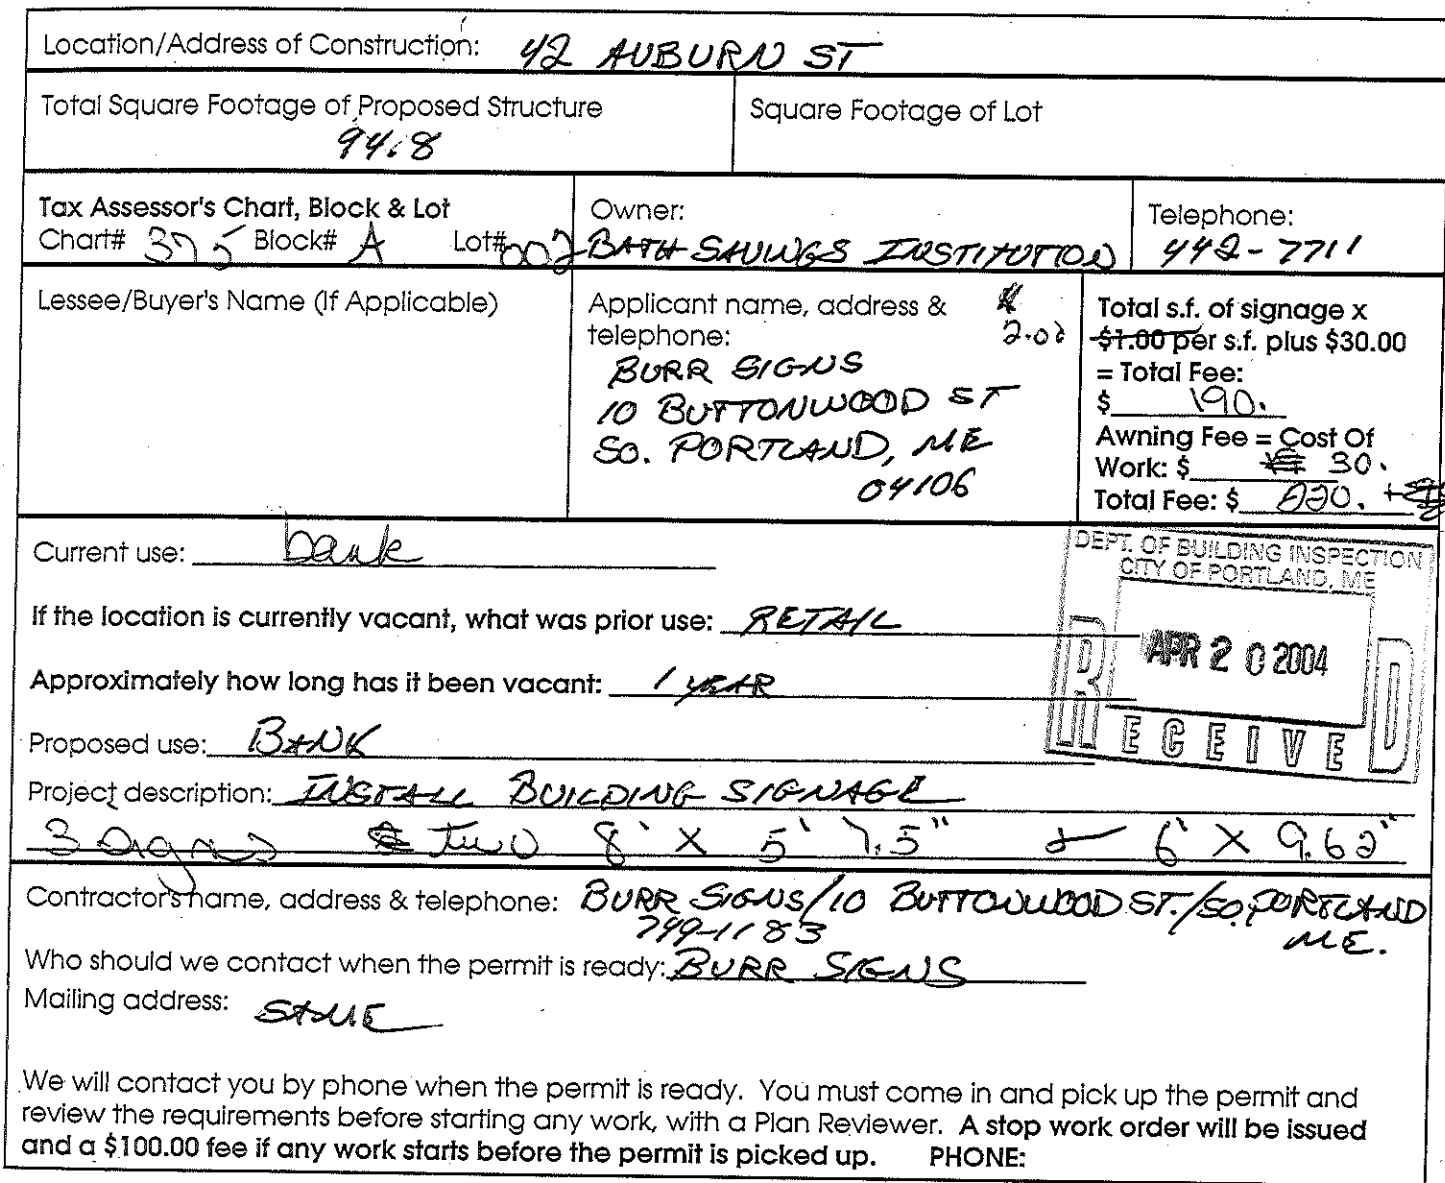 Location/Address of Construction: 42 AUBURN ST
Total Square Footage of Proposed Structure
94.8
Square Footage of Lot
Tax Assessor's Chart, Block & Lot
Chart# 375 Block# A Lot# 002
Owner:
BATH SAVINGS INSTITUTION
Telephone:
442-7711
Lessee/Buyer's Name (If Applicable)
Applicant name, address &
telephone:
BURR SIGNS
10 BUTTONWOOD ST
SO. PORTLAND, ME
04106
$
2.00
Total s.f. of signage x
$1.00 per s.f. plus $30.00
= Total Fee:
$ 190.
Awning Fee = Cost Of
Work: $ 30.
Total Fee: $ 220.
Current use: bank
DEPT. OF BUILDING INSPECTION
CITY OF PORTLAND, ME
APR 20 2004
RECEIVED
If the location is currently vacant, what was prior use: RETAIL
Approximately how long has it been vacant: 1 YEAR
Proposed use: BANK
Project description: INSTALL BUILDING SIGNAGE
3 signs two 8' X 5' 7.5" & 6' X 9.62"
Contractor's name, address & telephone: BURR SIGNS/10 BUTTONWOOD ST./SO. PORTLAND
799-1183 ME.
Who should we contact when the permit is ready: BURR SIGNS
Mailing address: SAME
We will contact you by phone when the permit is ready. You must come in and pick up the permit and
review the requirements before starting any work, with a Plan Reviewer. A stop work order will be issued
and a $100.00 fee if any work starts before the permit is picked up. PHONE: